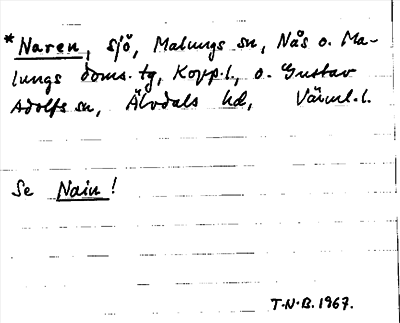 *Naren, sjö, Malungs sn, Nås o. Ma-
lungs doms. tg, Kopp.l., o. Gustav
Adolfs sn, Älvdals hd, Värml.l.
Se Nain!
T.N.B. 1967.